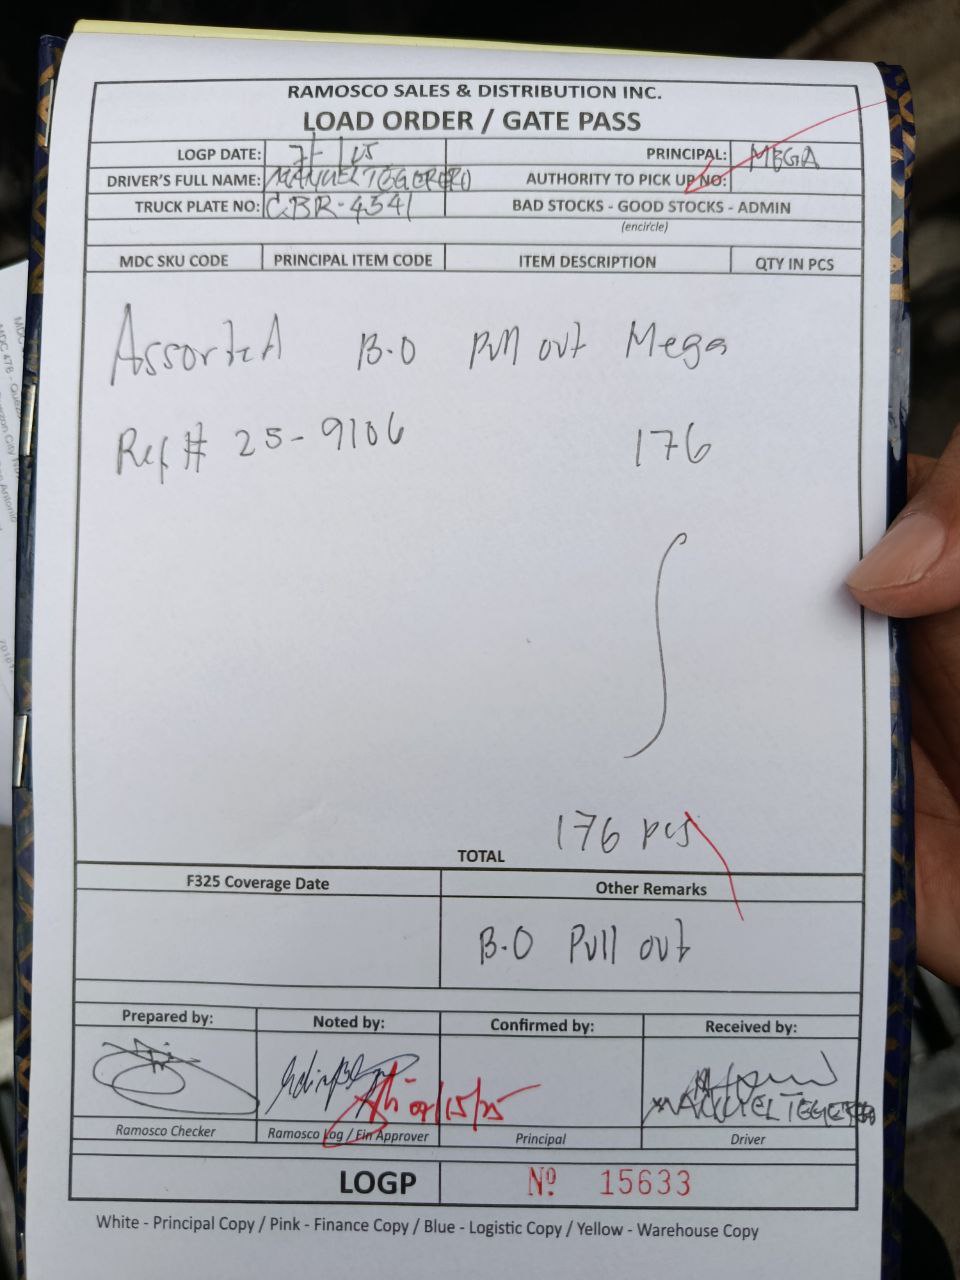 RAMOSCO SALES & DISTRIBUTION INC.
LOAD ORDER / GATE PASS
LOGP DATE: PRINCIPAL: MEGA
DRIVER'S FULL NAME: MANUEL TEGERERO AUTHORITY TO PICK UP NO:
TRUCK PLATE NO: CBR-4541 BAD STOCKS - GOOD STOCKS - ADMIN
(encircle)
MDC SKU CODE PRINCIPAL ITEM CODE ITEM DESCRIPTION QTY IN PCS
Assorted B.O Pull out Mega
Ref # 25-9106 176
176 pcs
TOTAL
F325 Coverage Date Other Remarks
B.O Pull out
Prepared by: Noted by: Confirmed by: Received by:
MANUEL TEGERERO
Ramosco Checker Ramosco Log / Fin Approver Principal Driver
LOGP Nº 15633
White - Principal Copy / Pink - Finance Copy / Blue - Logistic Copy / Yellow - Warehouse Copy